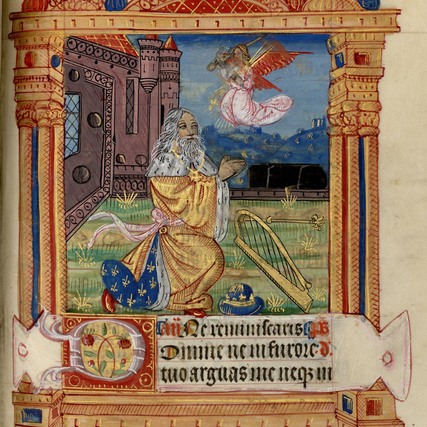 Ne reminiscaris ps
DOmine ne in furore d.
tuo arguas me neqꝫ in